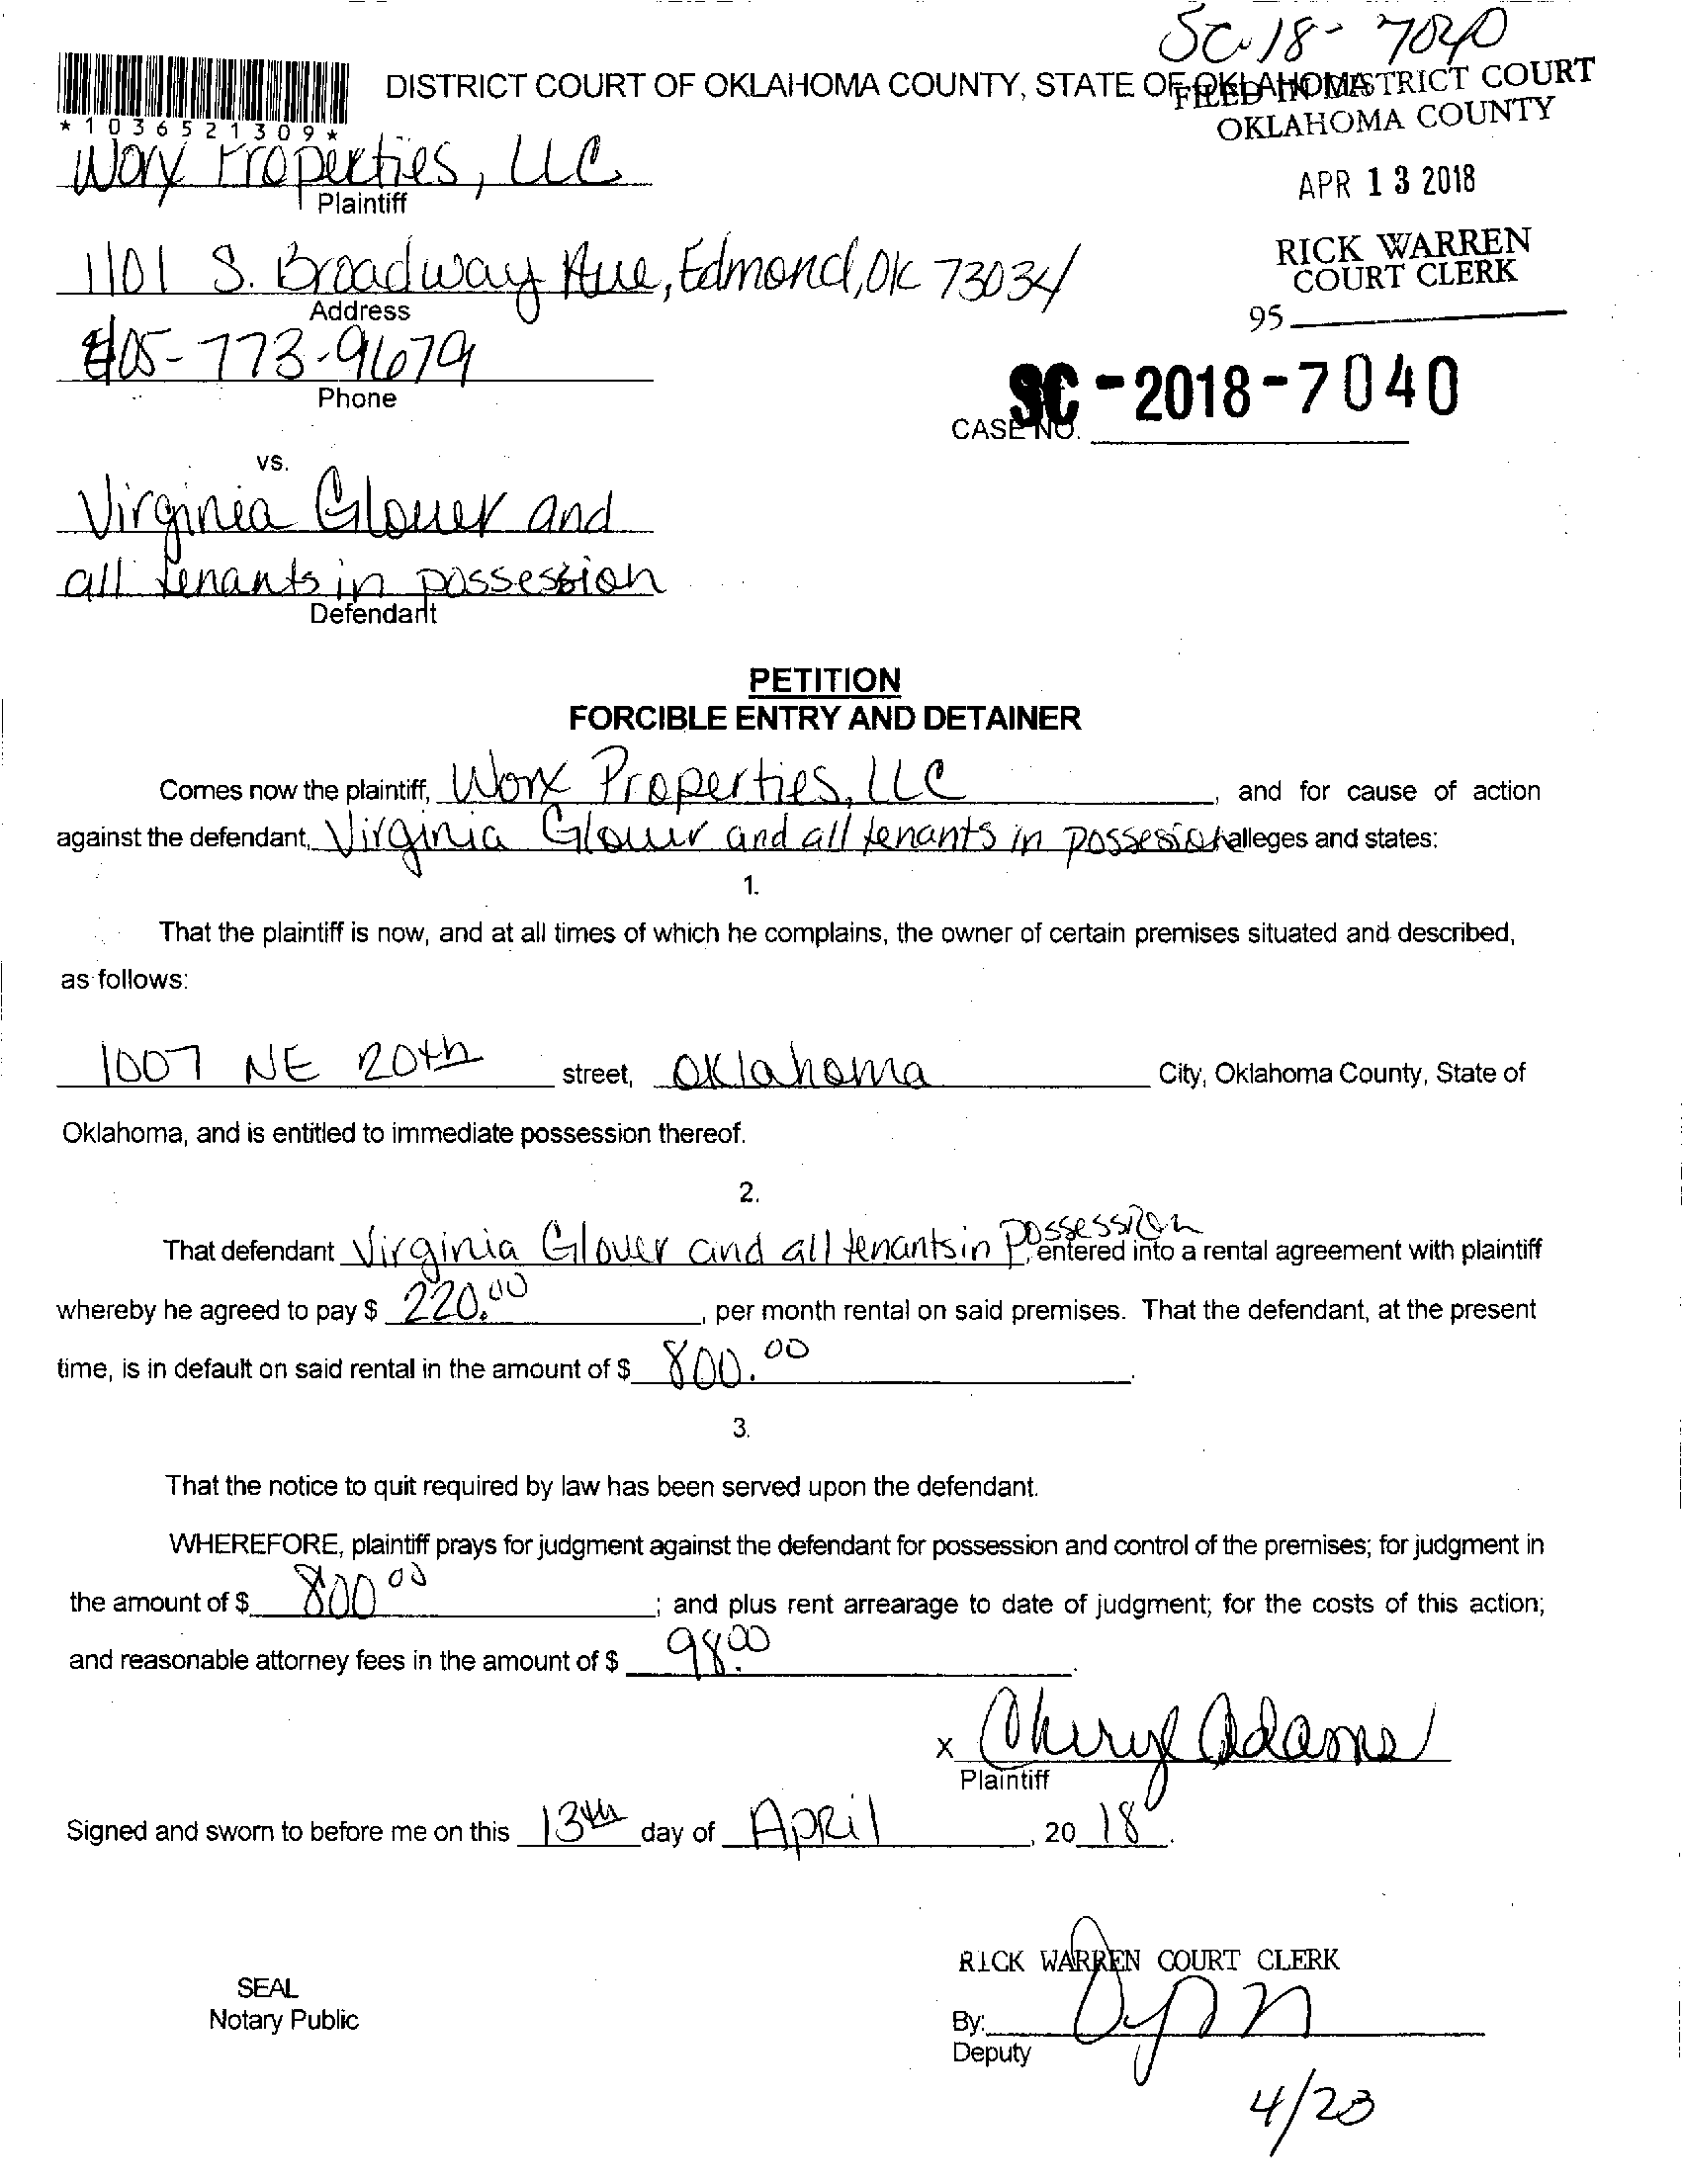 SC-18-7040
DISTRICT COURT OF OKLAHOMA COUNTY, STATE OF OKLAHOMA
FILED IN DISTRICT COURT
OKLAHOMA COUNTY
*1036521309*
Worx Properties, LLC
Plaintiff
APR 13 2018
1101 S. Broadway Ave, Edmond, OK 73034
Address
RICK WARREN
COURT CLERK
95
405-773-9679
Phone
CASE NO. SC-2018-7040
vs.
Virginia Glover and
all tenants in possession
Defendant
PETITION
FORCIBLE ENTRY AND DETAINER
Comes now the plaintiff, Worx Properties, LLC, and for cause of action
against the defendant, Virginia Glover and all tenants in possession alleges and states:
1.
That the plaintiff is now, and at all times of which he complains, the owner of certain premises situated and described,
as follows:
1007 NE 20th street, Oklahoma City, Oklahoma County, State of
Oklahoma, and is entitled to immediate possession thereof.
2.
That defendant Virginia Glover and all tenants in possession, entered into a rental agreement with plaintiff
whereby he agreed to pay $ 220.00, per month rental on said premises. That the defendant, at the present
time, is in default on said rental in the amount of $ 800.00.
3.
That the notice to quit required by law has been served upon the defendant.
WHEREFORE, plaintiff prays for judgment against the defendant for possession and control of the premises; for judgment in
the amount of $ 800 00; and plus rent arrearage to date of judgment; for the costs of this action;
and reasonable attorney fees in the amount of $ 98.00.
x Cheryl Adams
Plaintiff
Signed and sworn to before me on this 13th day of April, 20 18.
RICK WARREN COURT CLERK
SEAL
Notary Public
By:
Deputy
4/23